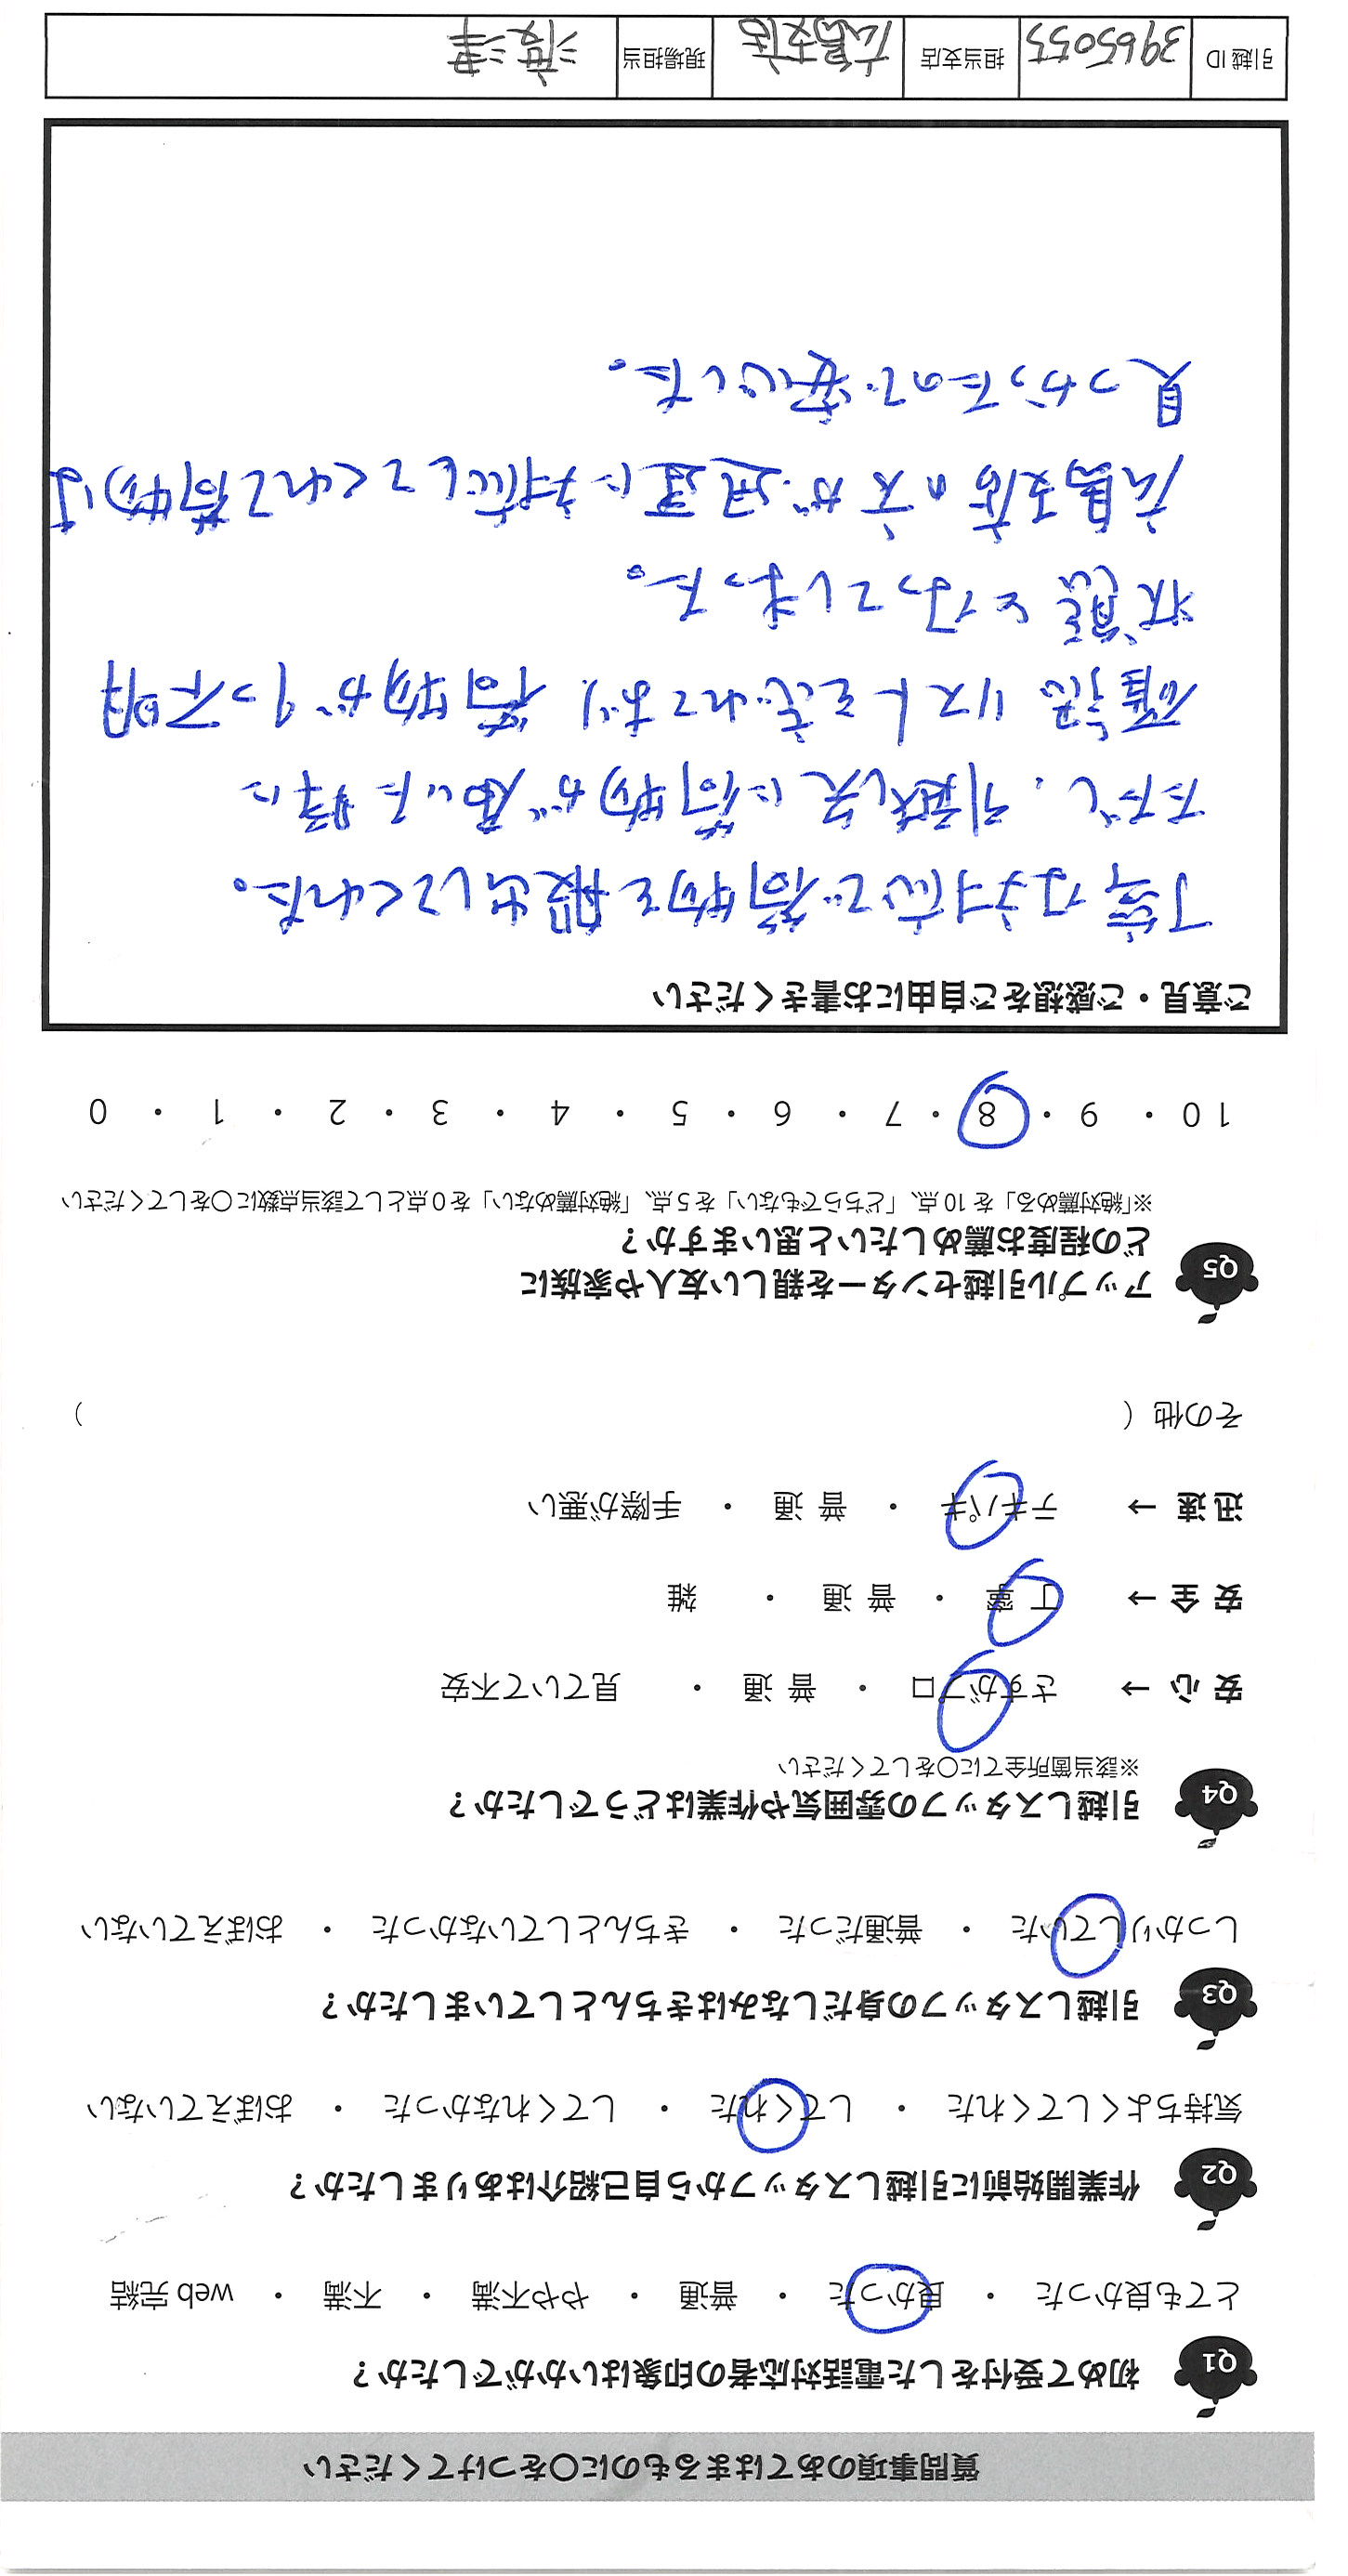 質問事項のあてはまるものに〇をつけてください
Q1 初めて受付をした電話対応者の印象はいかがでしたか？
とても良かった ・ 良かった ・ 普通 ・ やや不満 ・ 不満 ・ web 完結
Q2 作業開始前に引越しスタッフから自己紹介はありましたか？
気持ちよくしてくれた ・ してくれた ・ してくれなかった ・ おぼえていない
Q3 引越しスタッフの身だしなみはきちんとしていましたか？
しっかりしていた ・ 普通だった ・ きちんとしていなかった ・ おぼえていない
Q4 引越しスタッフの雰囲気や作業はどうでしたか？
※該当箇所全てに〇をしてください
安 心 → さすがプロ ・ 普 通 ・ 見ていて不安
安 全 → 丁 寧 ・ 普 通 ・ 雑
迅 速 → テキパキ ・ 普 通 ・ 手際が悪い
その他（ ）
Q5 アップル引越センターを親しい友人や家族に
どの程度お薦めしたいと思いますか？
※「絶対薦める」を 10 点、「どちらでもない」を 5 点、「絶対薦めない」を 0 点として該当点数に〇をしてください
10 ・ 9 ・ 8 ・ 7 ・ 6 ・ 5 ・ 4 ・ 3 ・ 2 ・ 1 ・ 0
ご意見・ご感想をご自由にお書きください
丁寧な対応で荷物を搬出してくれた。
ただし、引越し先に荷物が届いた時に
確認リストを忘れており荷物が1つ不明
状態となってしまった。
広島支店の方が迅速に対応してくれて荷物は
見つかったので安心した。
引越 ID 3965055 担当支店 広島支店 現場担当 渡津